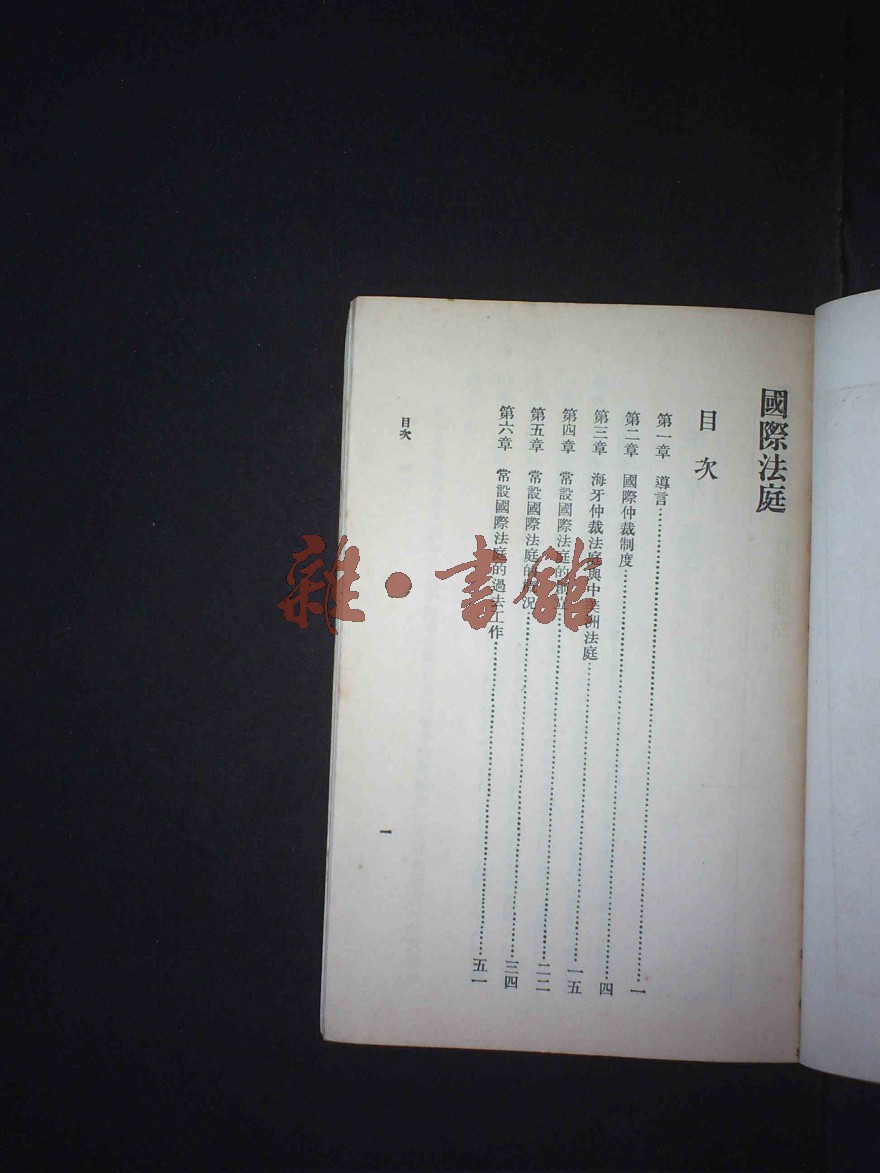 國際法庭
目次
第一章 導言…………一
第二章 國際仲裁制度…………四
第三章 海牙仲裁法庭與中美洲法庭…………一五
第四章 常設國際法庭的創立…………二二
第五章 常設國際法庭的現況…………三四
第六章 常設國際法庭的過去工作…………五一
目次
一
雜·書館